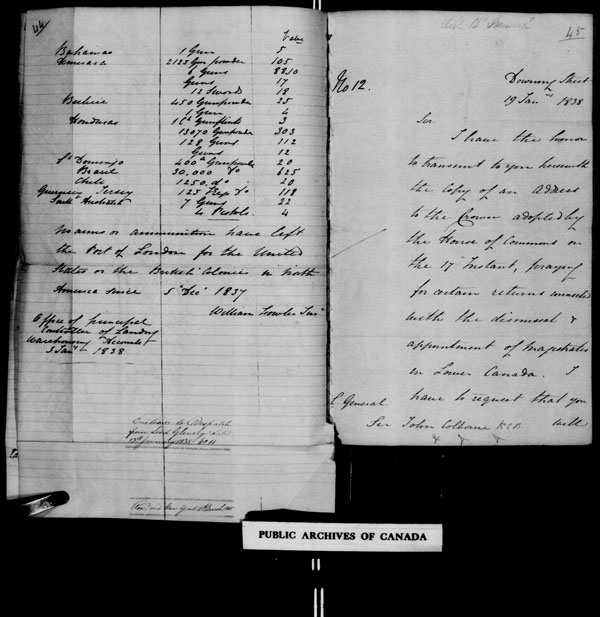 44
Value
Bahamas 1 Gun 5
Demerara 2125 Gunpowder 105
6 Guns 8810
Guns 17
12 Swords 18
Berbice 450 Gunpowder 25
1 Gun 4
Honduras 1 Ct Gunflints 3
13070 Gunpowder 303
128 Guns 112
Guns 12
St Domingo 400 Gunpowder 20
Brazil 30,000 Do 625
Chili 1250 do 20
Guernsey Jersey 125 Do 118
South Australia 7 Guns 22
4 Pistols 4
No arms or ammunition have left
the Port of London for the United
States or the British Colonies in North
America since 5th Decr 1837
William Fowler Junr
Office of principal
Controller of Landing
Warehousing Accounts
5 Jany 1838
Enclosure to Despatch
from Lord Glenelg
January 1838 No 11
45
No 12.
Downing Street
19 Jany 1838
Sir
I have the honor
to transmit to you herewith
the copy of an Address
to the Crown adopted by
the House of Commons on
the 17 Instant, praying
for certain returns connected
with the dismissal &
appointment of Magistrates
in Lower Canada. I
have to request that you
will
L General
Sir John Colborne KCB
PUBLIC ARCHIVES OF CANADA